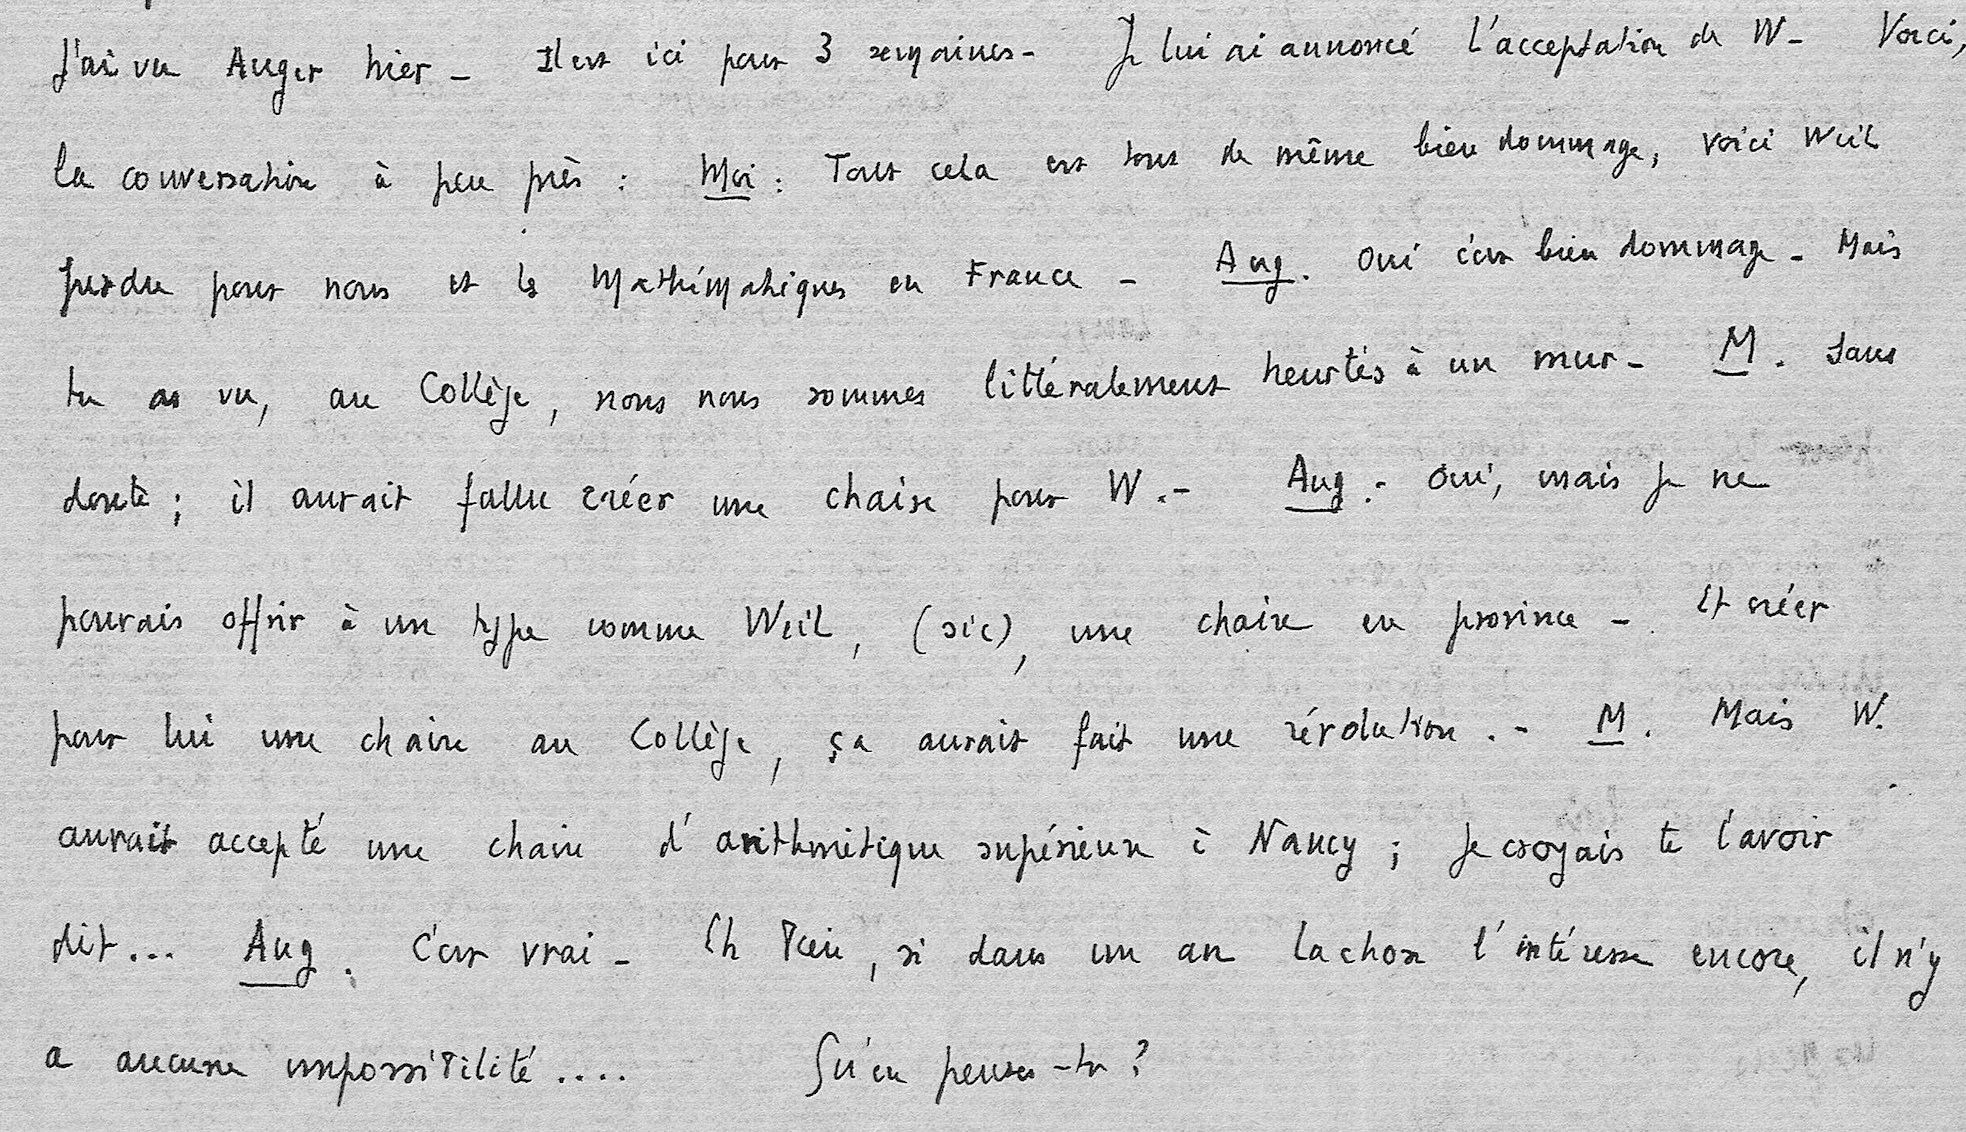 J'ai vu Auger hier – Il est ici pour 3 semaines – Je lui ai annoncé l'acceptation de W – Voici,
la conversation à peu près : Moi : Tout cela est tout de même bien dommage, voici Weil
perdu pour nous et les Mathématiques en France – Aug. Oui c'est bien dommage – Mais
tu as vu, au Collège, nous nous sommes littéralement heurtés à un mur – M. Sans
doute ; il aurait fallu créer une chaire pour W. – Aug. – Oui, mais je ne
pouvais offrir à un type comme Weil, (sic), une chaire en province – Et créer
pour lui une chaire au Collège, ça aurait fait une révolution. – M. Mais W.
aurait accepté une chaire d'arithmétique supérieure à Nancy ; je croyais te l'avoir
dit... Aug. C'est vrai – Eh bien, si dans un an la chose l'intéresse encore, il n'y
a aucune impossibilité .... Qu'en penses-tu ?